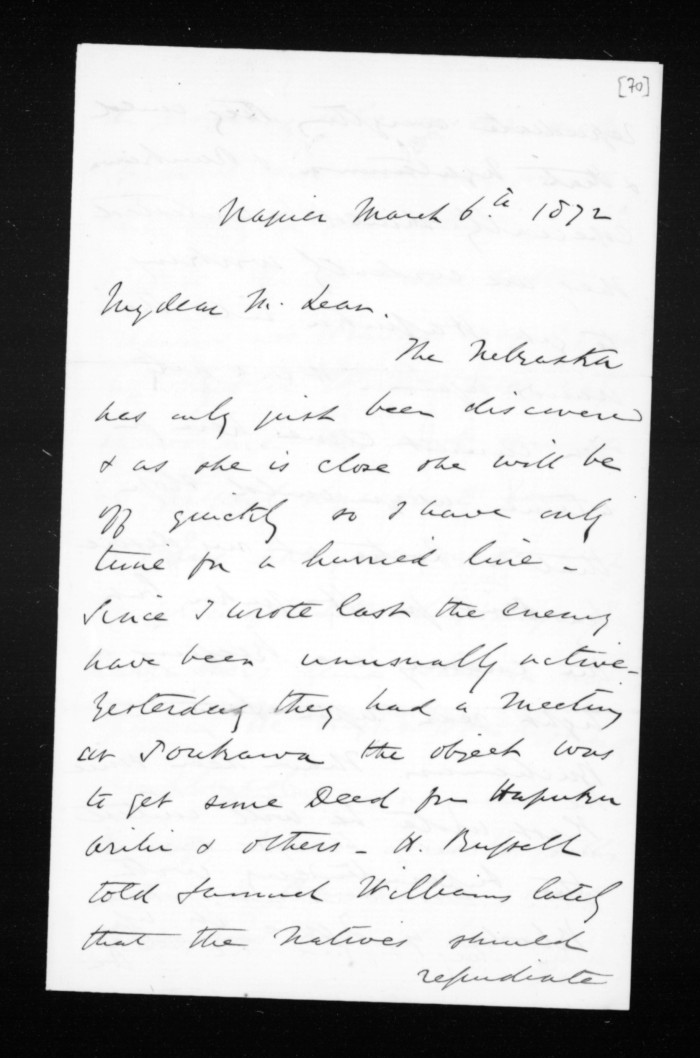 [70]
Napier March 6.th 1872
My dear Mc. Lean.
The Nebraska
has only just been discovered
& as she is close she will be
off quickly so I have only
time for a hurried line -
Since I wrote last the enemy
have been unusually active -
Yesterday they had a meeting
at the object was
to get some Deed for Hapuku
& others - H. Russell
told Samuel Williams lately
that the Natives should
repudiate